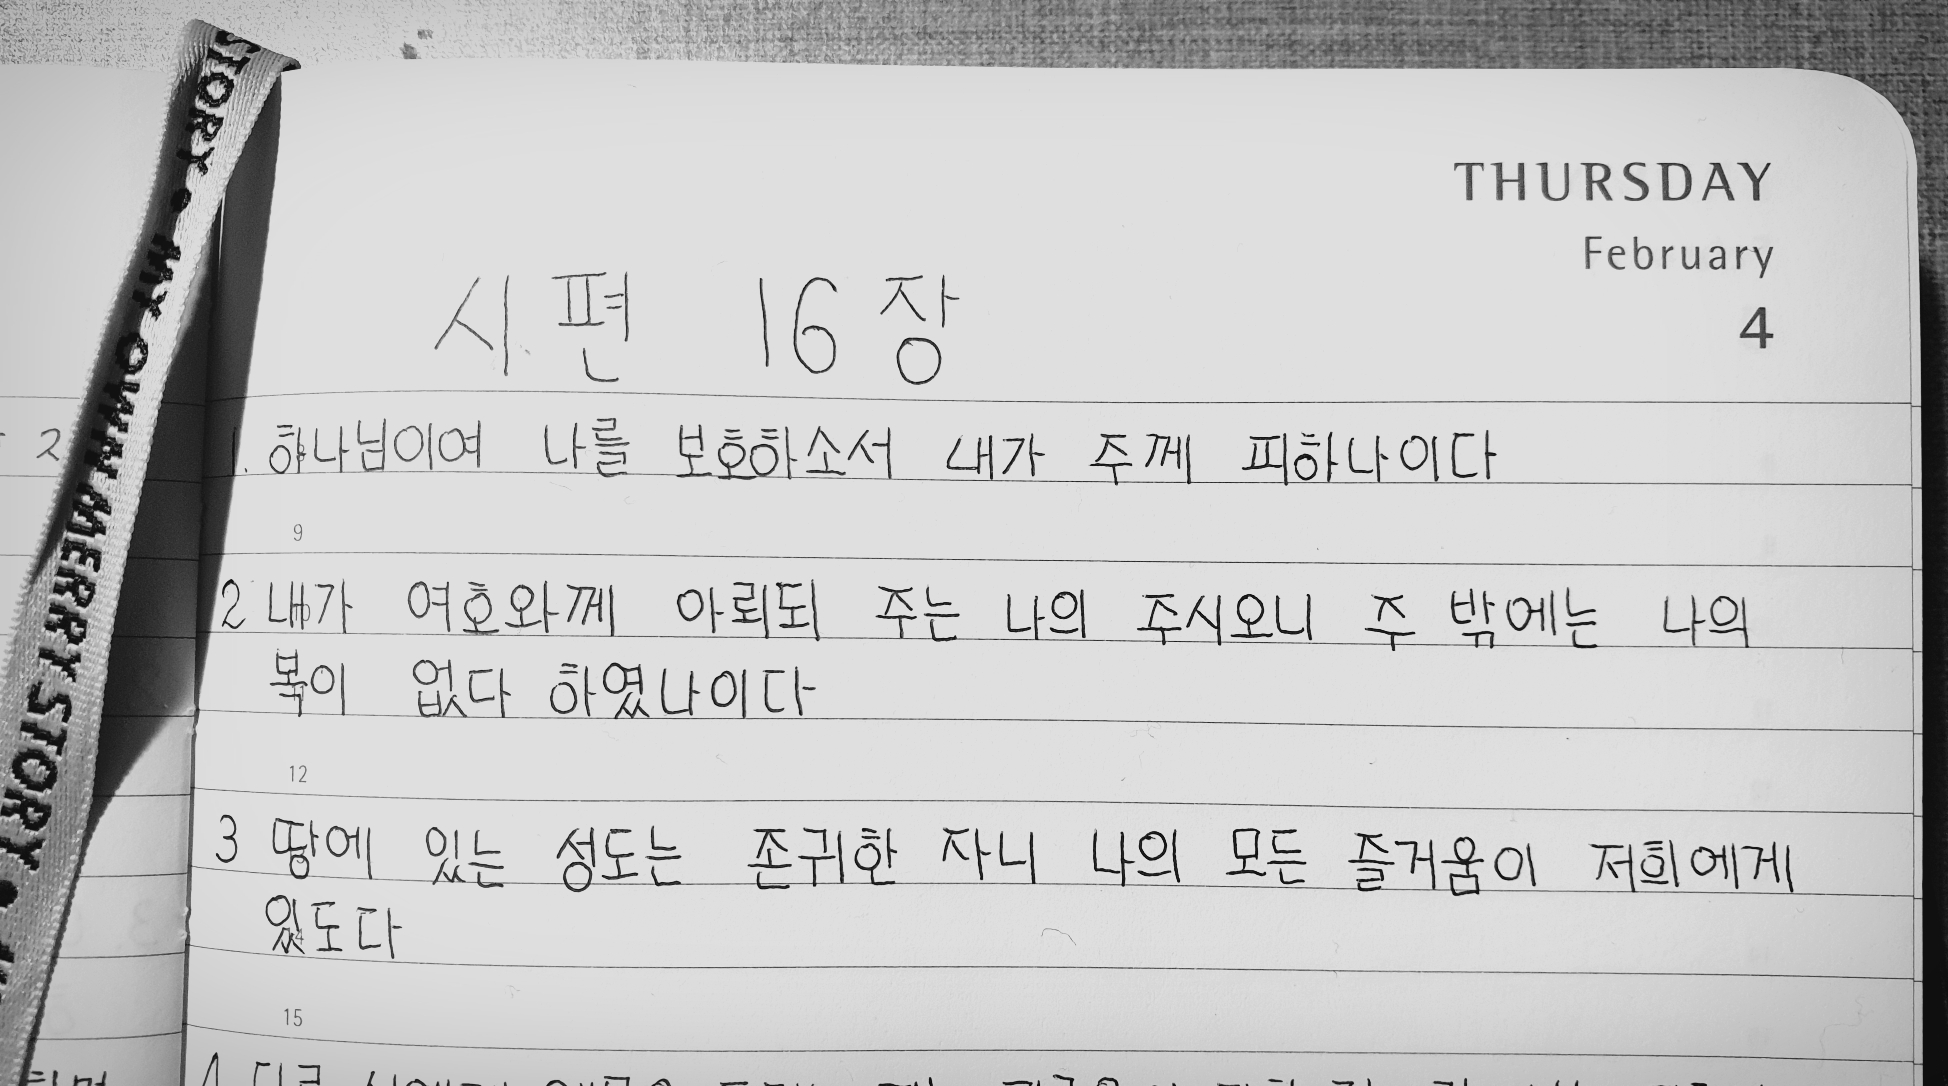 STORY • MY OWN MERRY STORY •
THURSDAY
February
4
시편 16장
2
1. 하나님이여 나를 보호하소서 내가 주께 피하나이다
9
2 내가 여호와께 아뢰되 주는 나의 주시오니 주 밖에는 나의
복이 없다 하였나이다
12
3 땅에 있는 성도는 존귀한 자니 나의 모든 즐거움이 저희에게
있도다
15